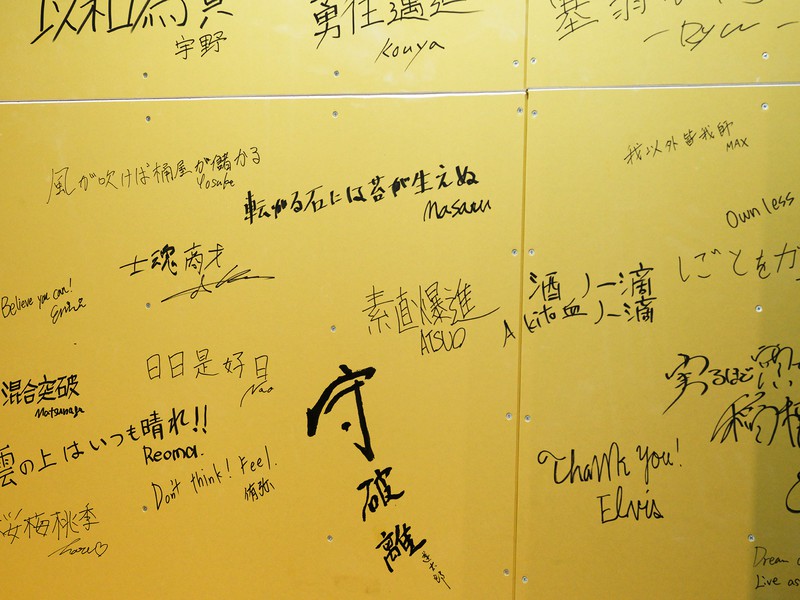 以和為貴
宇野
勇往邁進
Kouya
- Ryu -
風が吹けば桶屋が儲かる
Yosuke
転がる石には苔が生えぬ
Masaru
我以外皆我師
MAX
Own less
しごとを
士魂商才
Believe you can!
素直爆進
ATSUO
酒ノ一滴
血ノ一滴
Akito
日日是好日
Nao
混合突破
Matsunaga
実るほど
稲穂
守
破
離
雲の上はいつも晴れ!!
Reona.
Don't think! Feel.
侑弥
Thank you!
Elvis
桜梅桃季
Dream
Live as